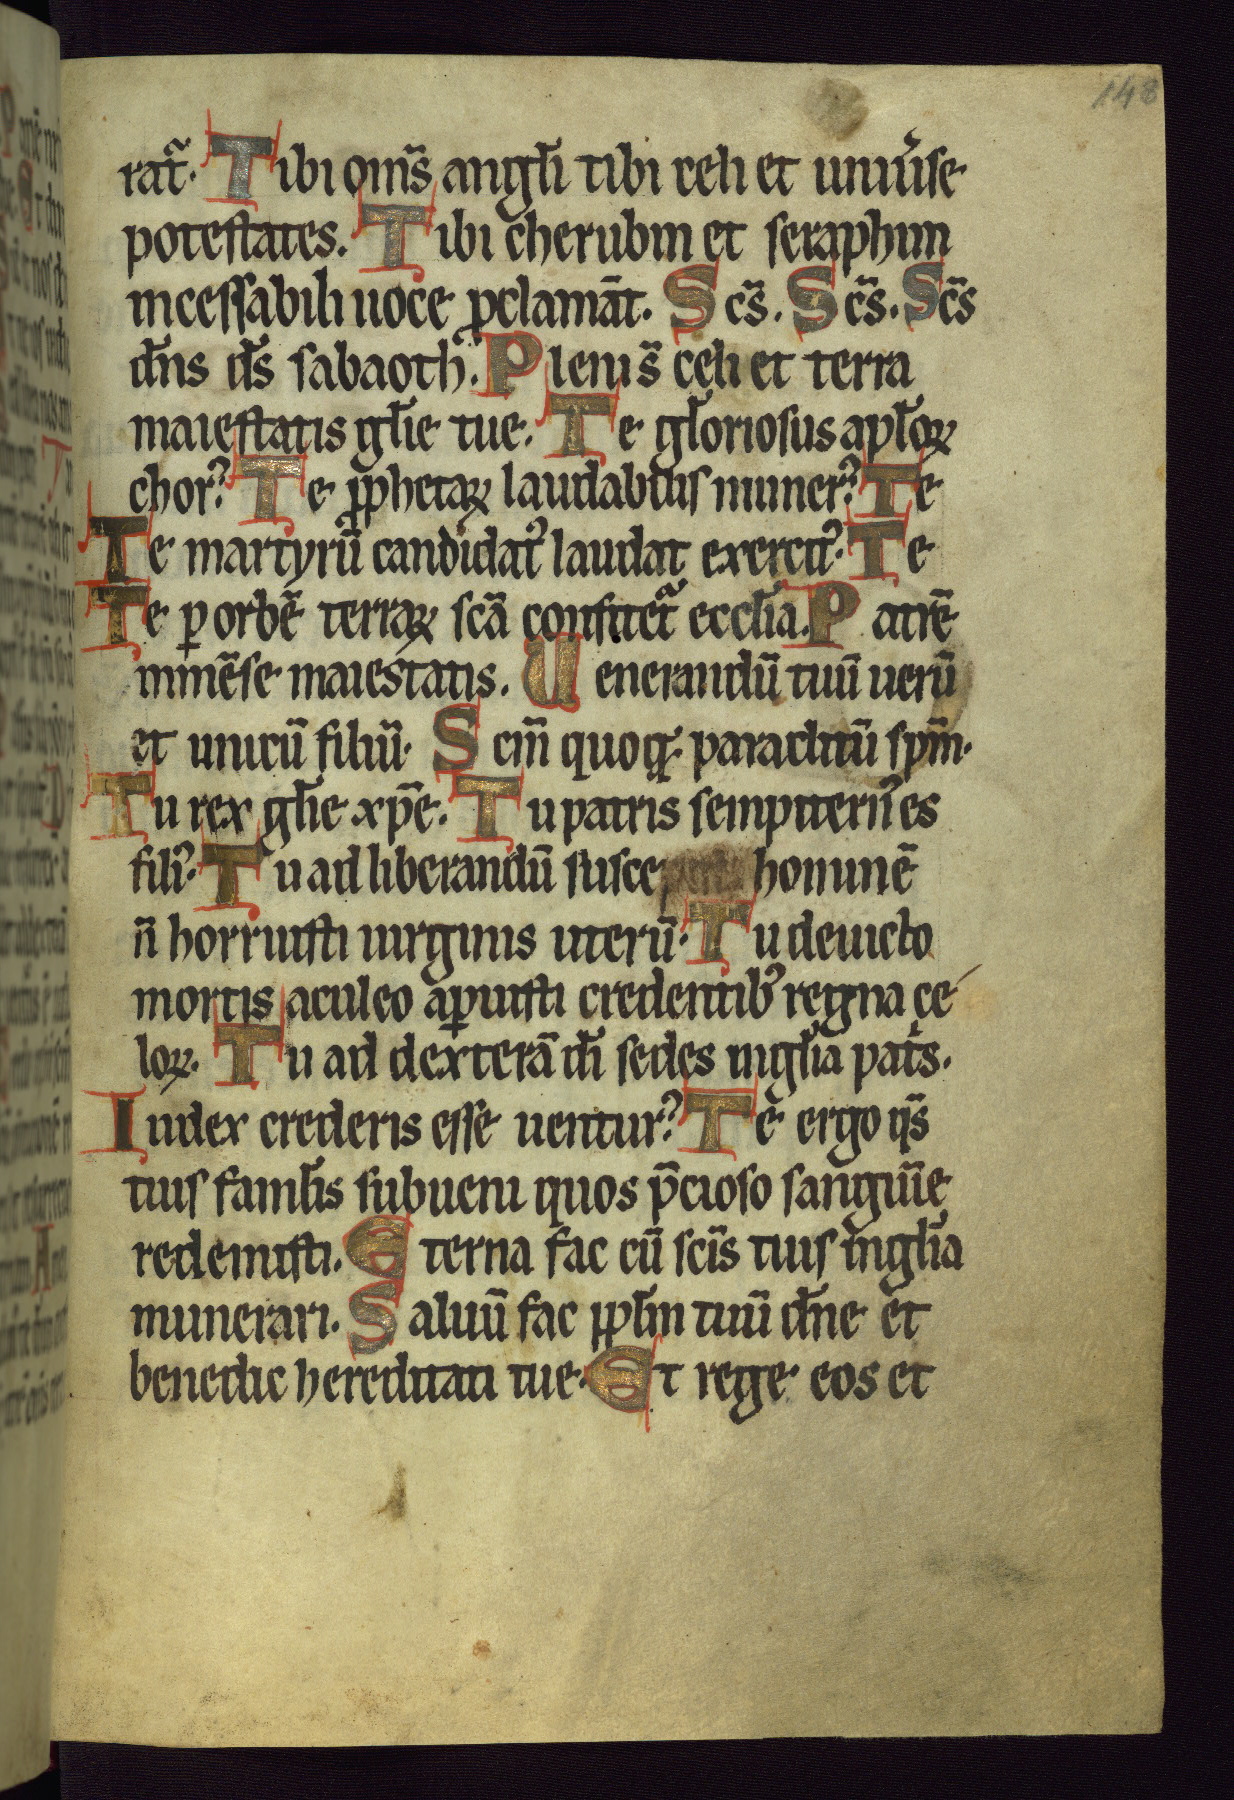 148
rat᷑. Tibi om̅s angl̅i tibi celi et uniu̓se
potestates. Tibi cherubin et seraphim
incessabili uoce ꝓclama̅t. Sc̅s. Sc̅s. Sc̅s
dn̅s ds̅ sabaoth. Pleni s̅ celi et terra
maiestatis gl̅ie tue. Te gl̅oriosus apl̅oꝝ
chorꝰ Te ꝓphetaꝝ laudabilis numerꝰ. Te
Te martyru̅ candidatꝰ laudat exercitꝰ. Te
Te ꝑ orbe̅ terraꝝ sc̅a confitet᷑ eccl̅ia. Patre̅
inme̅se maiestatis. Uenerandu̅ tuu̅ ueru̅
et unicu̅ filiu̅. Scm̅ quoqꝫ paraclitu̅ spm̅.
Tu rex gl̅ie xp̅e. Tu patris sempiternꝰ es
filiꝰ. Tu ad liberandu̅ susce homine̅
n̅ horruisti uirginis uteru̅. Tu deuicto
mortis aculeo aꝑuisti credentibꝰ regna ce
loꝝ. Tu ad dextera̅ di̅ sedes in gl̅ia pat̓s.
Iudex crederis esse uenturꝰ Te ergo qs̅
tuis famul̅is subueni quos p̅cioso sangui̅e
redemisti. Eterna fac cu̅ sci̅s tuis in gl̅ia
munerari. Saluu̅ fac ppl̅m tuu̅ dn̅e et
benedic hereditati tue. Et rege eos et